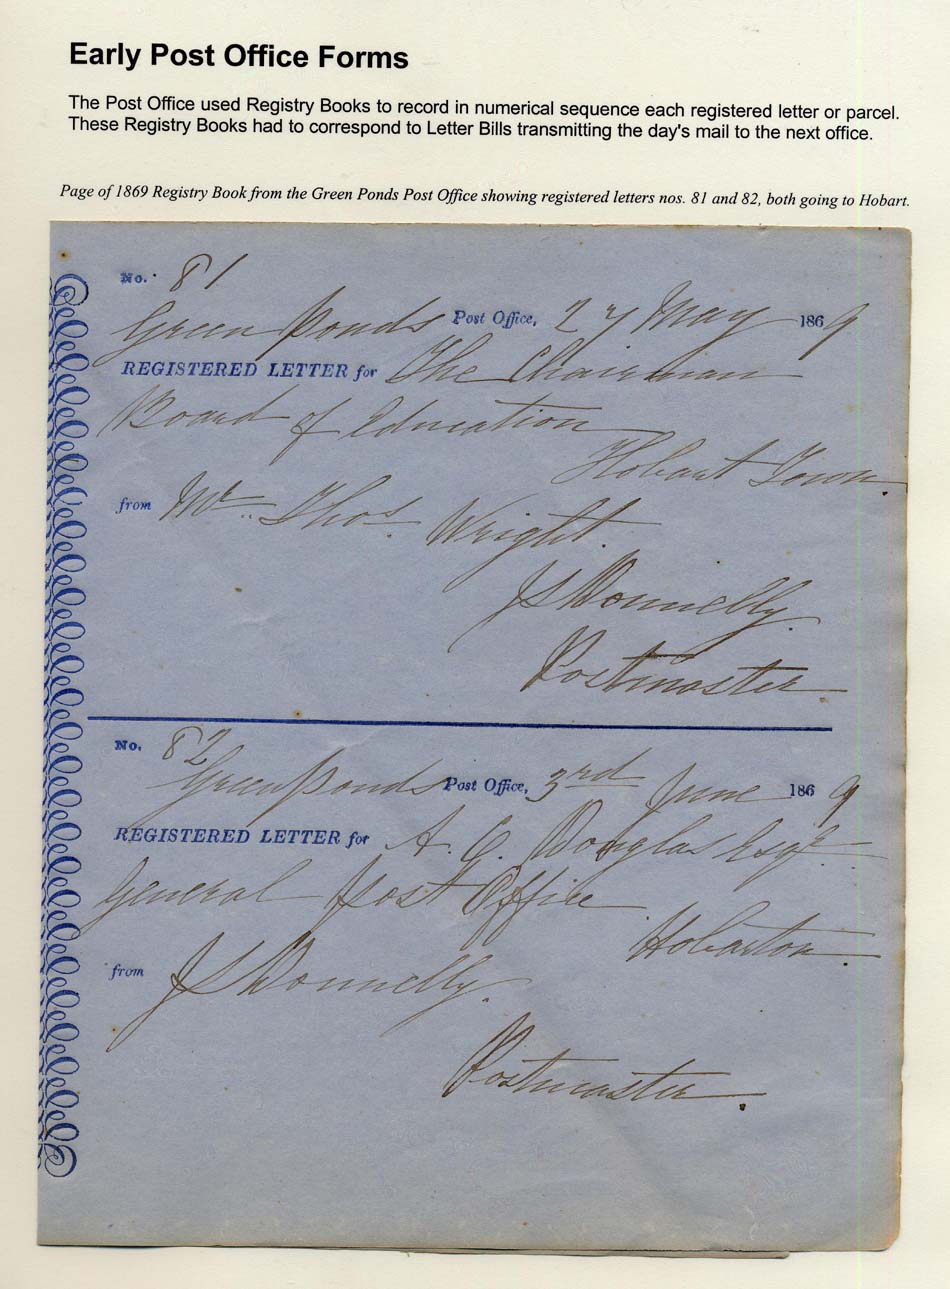 Early Post Office Forms
The Post Office used Registry Books to record in numerical sequence each registered letter or parcel.
These Registry Books had to correspond to Letter Bills transmitting the day's mail to the next office.
Page of 1869 Registry Book from the Green Ponds Post Office showing registered letters nos. 81 and 82, both going to Hobart.
No. 81
Green Ponds Post Office, 27 May 1869
REGISTERED LETTER for The Chairman
Board of Education
Hobart Town.
from Mr. Thos. Wright.
JS Donnelly.
Postmaster.
No. 82
Green Ponds Post Office, 3rd June 1869
REGISTERED LETTER for A. C. Douglas Esqr.
General Post Office
Hobarton.
from JS Donnelly.
Postmaster.